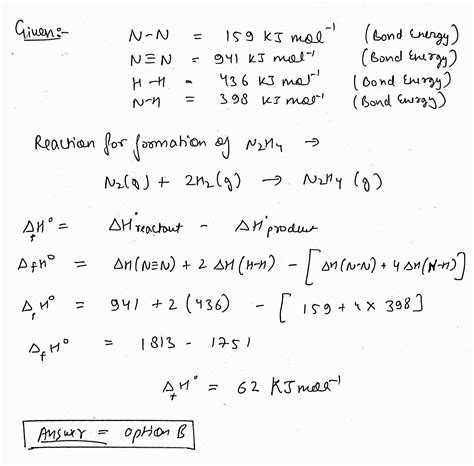 Given:-
N-N = 159 KJ mol⁻¹ (Bond Energy)
N≡N = 941 KJ mol⁻¹ (Bond Energy)
H-H = 436 KJ mol⁻¹ (Bond Energy)
N-H = 398 KJ mol⁻¹ (Bond Energy)
Reaction for formation of N₂H₄ →
N₂(g) + 2H₂(g) → N₂H₄(g)
Δ_f H° = ΔH°reactant - ΔH°product
Δ_f H° = ΔH(N≡N) + 2 ΔH(H-H) - [ΔH(N-N) + 4 ΔH(N-H)]
Δ_f H° = 941 + 2(436) - [159 + 4 × 398]
Δ_f H° = 1813 - 1751
Δ_f H° = 62 KJ mol⁻¹
Answer = option B